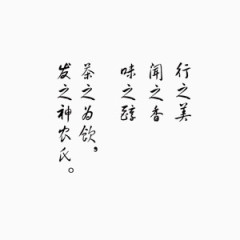 行之美
闻之香
味之醇
茶之为饮，
发之神农氏。